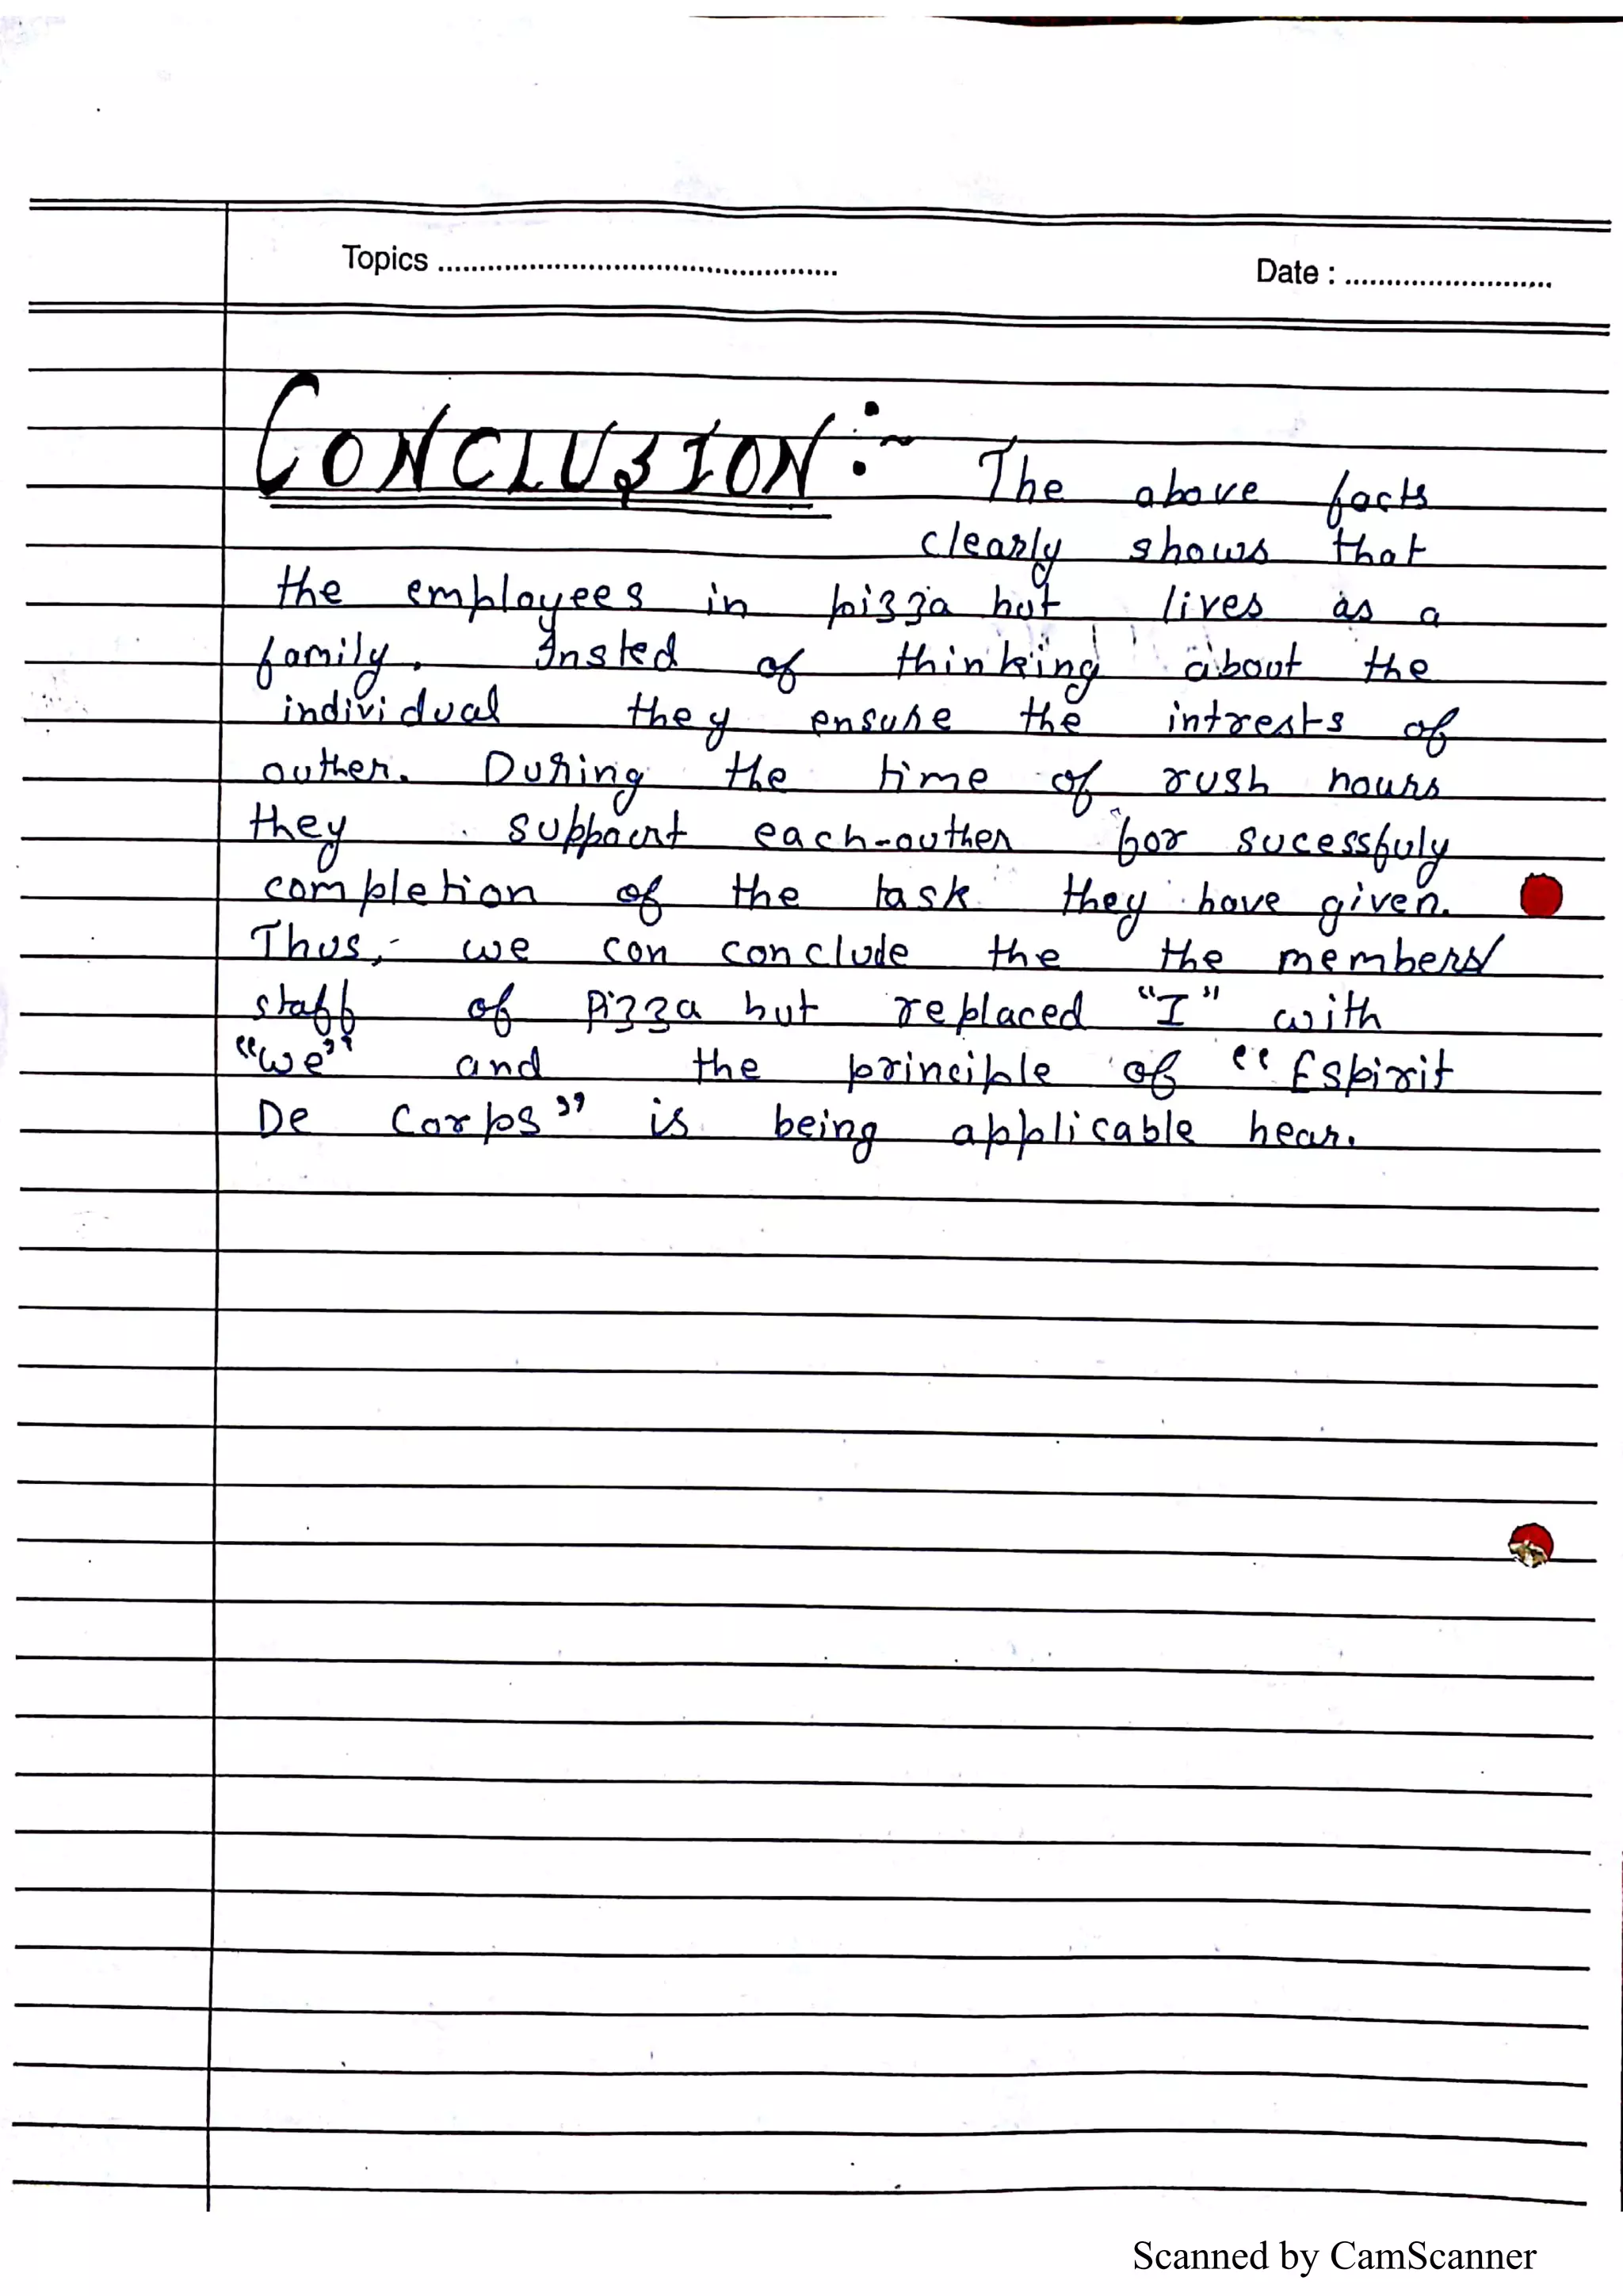 Topics ................................................ Date : .........................
CONCLUSION :- The above facts
clearly shows that
the employees in pizza hut lives as a
family. Insted of thinking about the
individual they ensure the intrests of
outher. During the time of rush hours
they suppourt each-outher for sucessfuly
completion of the task they have given.
Thus, we can conclude the the members/
staff of Pizza hut replaced "I" with
"we" and the principle of "Espirit
De Corps" is being applicable hear.
Scanned by CamScanner